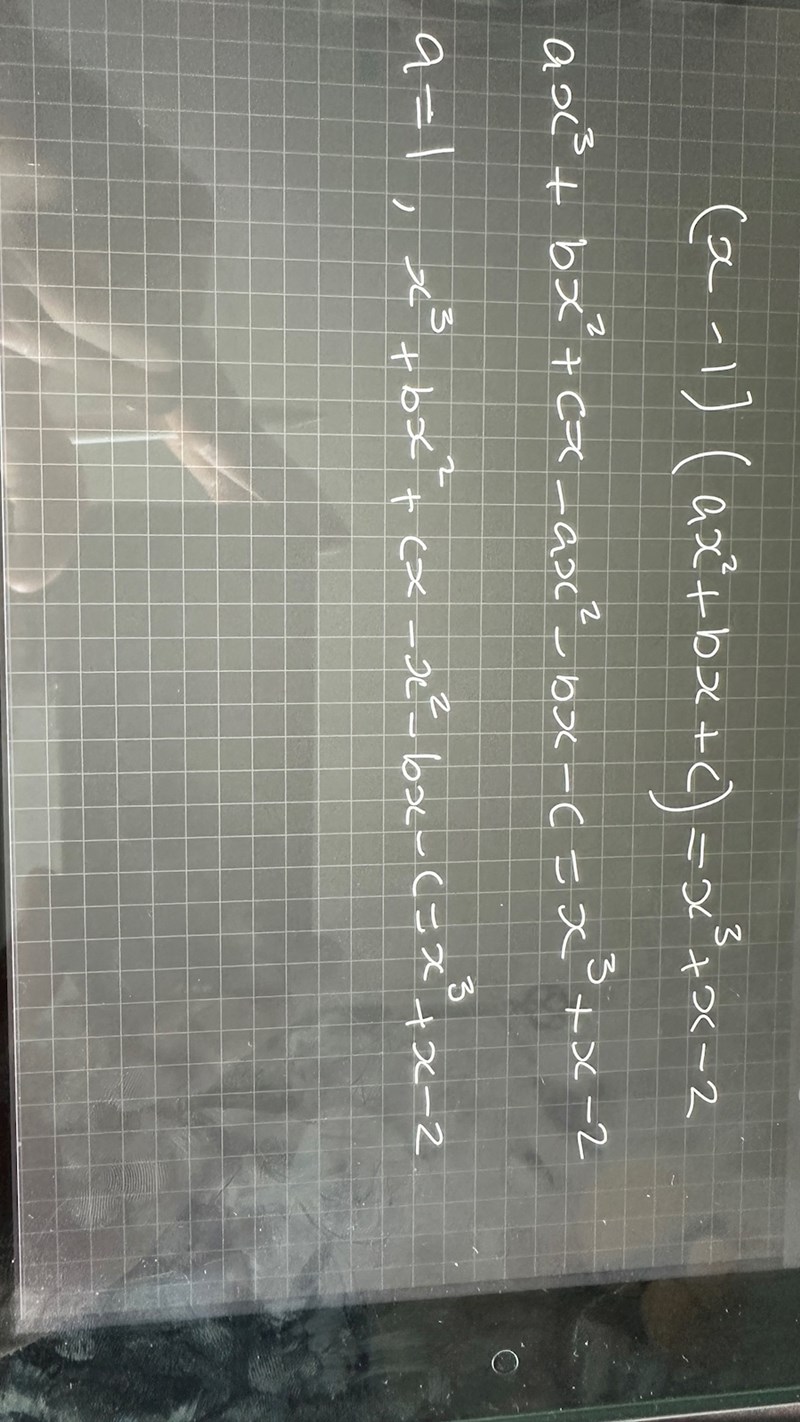 (x - 1) (ax² + bx + c) = x³ + x - 2
ax³ + bx² + cx - ax² - bx - c = x³ + x - 2
a = 1, x³ + bx² + cx - x² - bx - c = x³ + x - 2